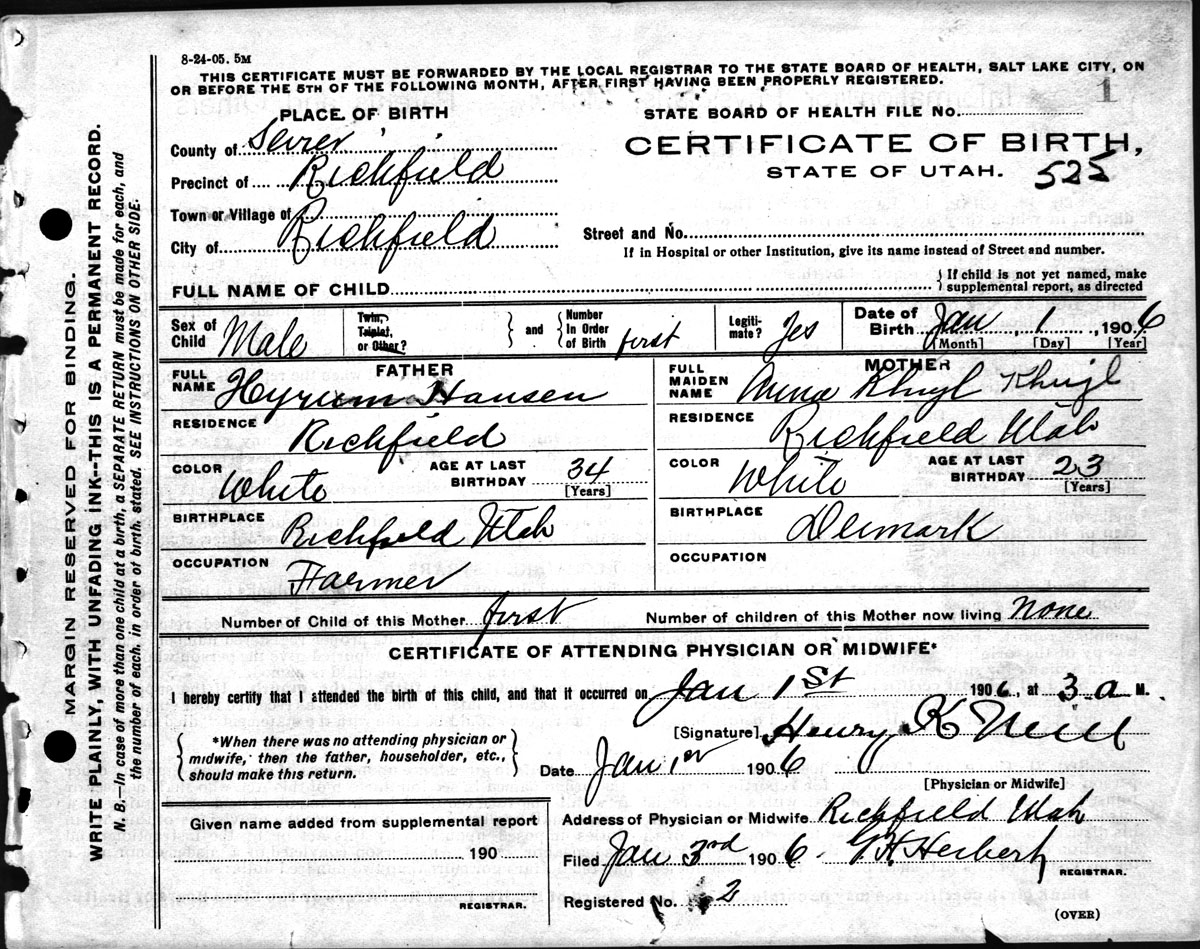 8-24-05. 5M
THIS CERTIFICATE MUST BE FORWARDED BY THE LOCAL REGISTRAR TO THE STATE BOARD OF HEALTH, SALT LAKE CITY, ON
OR BEFORE THE 5TH OF THE FOLLOWING MONTH, AFTER FIRST HAVING BEEN PROPERLY REGISTERED.
1
PLACE OF BIRTH
STATE BOARD OF HEALTH FILE No.
County of Sevier
CERTIFICATE OF BIRTH,
STATE OF UTAH. 525
Precinct of Richfield
Town or Village of
City of Richfield
Street and No.
If in Hospital or other Institution, give its name instead of Street and number.
FULL NAME OF CHILD
If child is not yet named, make
supplemental report, as directed
Sex of Child Male
Twin, Triplet, or Other? and Number In Order of Birth first
Legitimate? Yes
Date of Birth Jan 1, 1906
[Month] [Day] [Year]
FATHER
FULL NAME Hyrum Hansen
RESIDENCE Richfield
COLOR White
AGE AT LAST BIRTHDAY 34
[Years]
BIRTHPLACE Richfield Utah
OCCUPATION Farmer
MOTHER
FULL MAIDEN NAME Anna
RESIDENCE Richfield Utah
COLOR White
AGE AT LAST BIRTHDAY 23
[Years]
BIRTHPLACE Denmark
OCCUPATION
Number of Child of this Mother first Number of children of this Mother now living None
CERTIFICATE OF ATTENDING PHYSICIAN OR MIDWIFE*
I hereby certify that I attended the birth of this child, and that it occurred on Jan 1st 1906, at 3 a M.
*When there was no attending physician or
midwife, then the father, householder, etc.,
should make this return.
[Signature] Henry K Neill
Date Jan 1st 1906
[Physician or Midwife]
Given name added from supplemental report
190
REGISTRAR.
Address of Physician or Midwife Richfield Utah
Filed Jan 3rd 1906. Herbert
REGISTRAR.
Registered No. 2
(OVER)
MARGIN RESERVED FOR BINDING.
WRITE PLAINLY, WITH UNFADING INK--THIS IS A PERMANENT RECORD.
N. B.—In case of more than one child at a birth, a SEPARATE RETURN must be made for each, and
the number of each, in order of birth, stated. SEE INSTRUCTIONS ON OTHER SIDE.